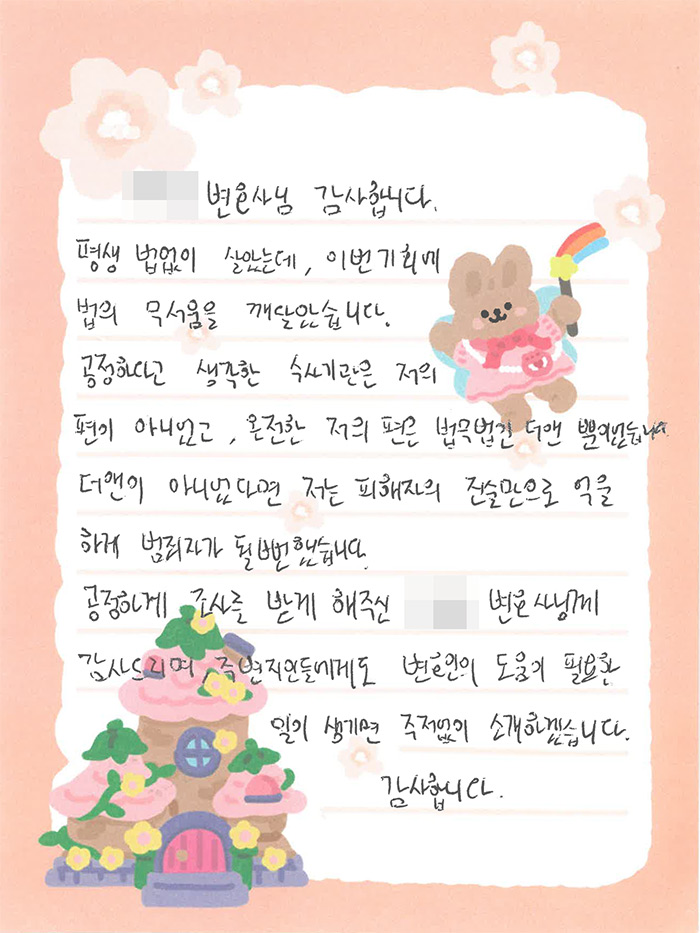 변호사님 감사합니다.
평생 법없이 살았는데, 이번기회에
법의 무서움을 깨달았습니다.
공정하다고 생각한 수사기관은 저의
편이 아니었고, 온전한 저의 편은 법무법인 더앤 뿐이었습니다.
더앤이 아니었다면 저는 피해자의 진술만으로 억울
하게 범죄자가 될뻔했습니다.
공정하게 조사를 받게 해주신 변호사님께
감사드리며, 주변지인들에게도 변호인의 도움이 필요한
일이 생기면 주저없이 소개하겠습니다.
감사합니다.